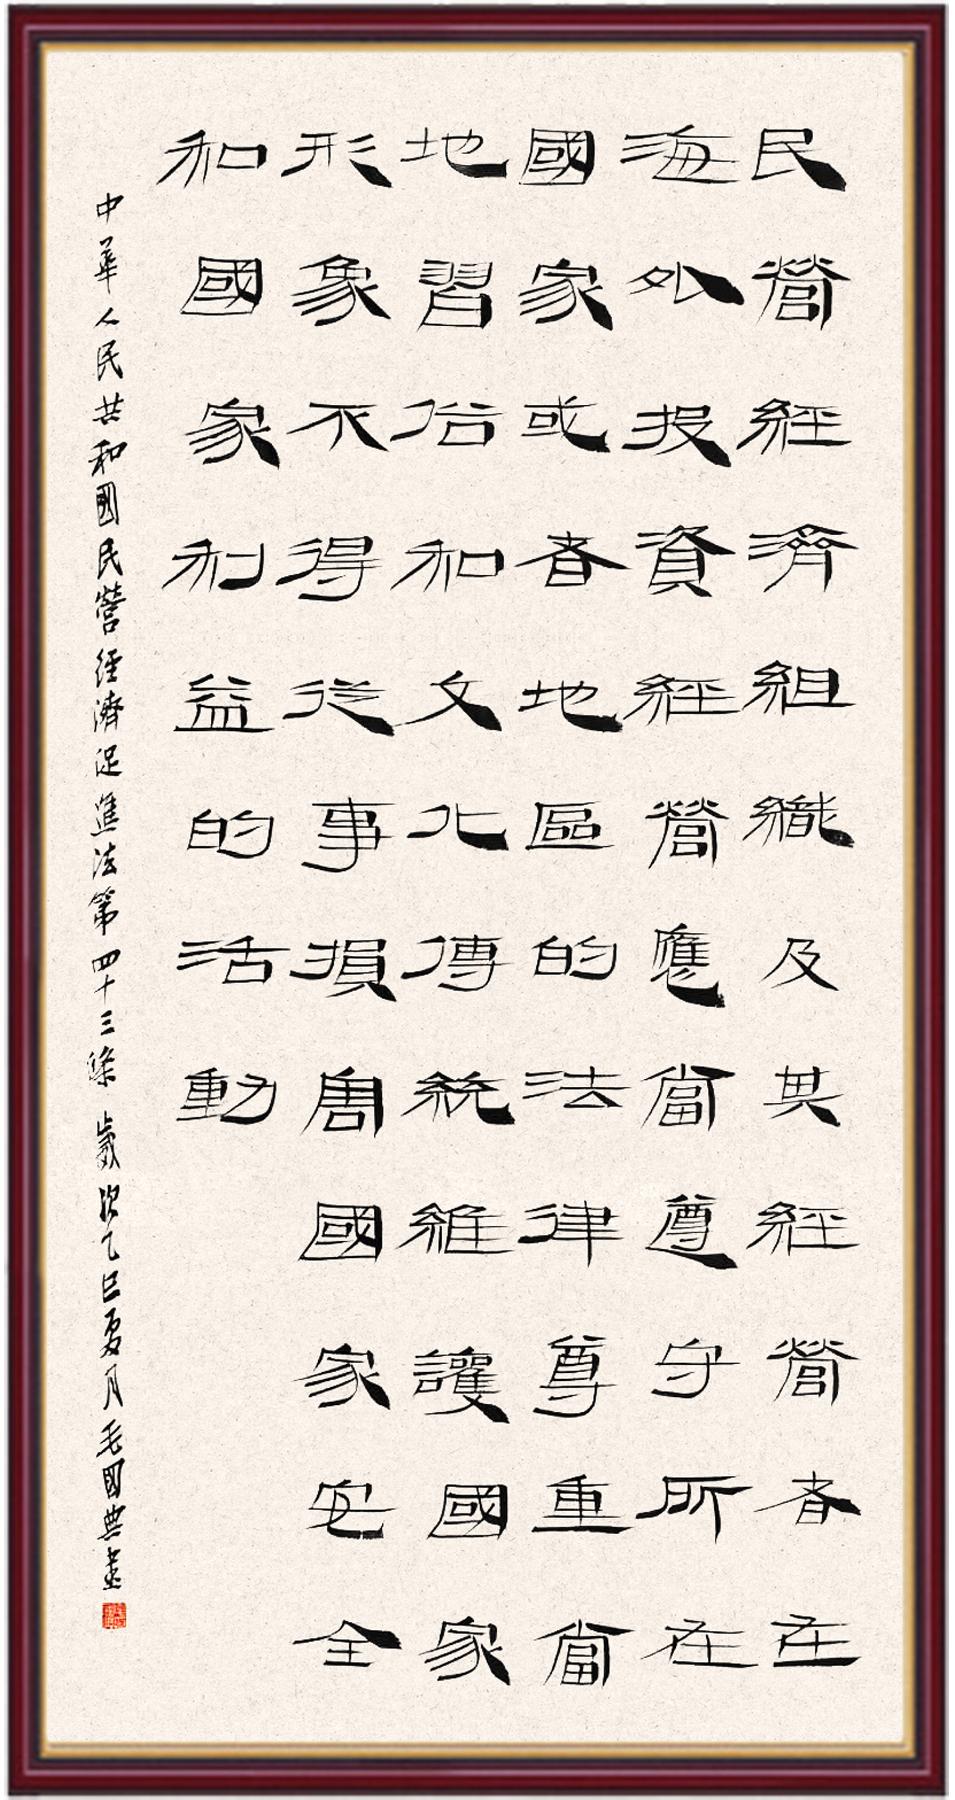 民營經濟組織及其經營者在
海外投資經營應當遵守所在
國家或者地區的法律尊重當
地習俗和文化傳統維護國家
形象不得從事損害國家安全
和國家利益的活動
中華人民共和國民營經濟促進法第四十三條 歲次乙巳夏月毛國典書